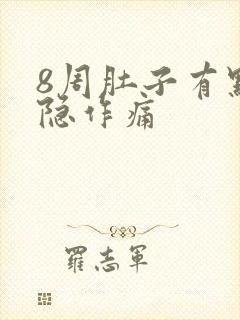 8周肚子有點
隐作痛
羅志軍